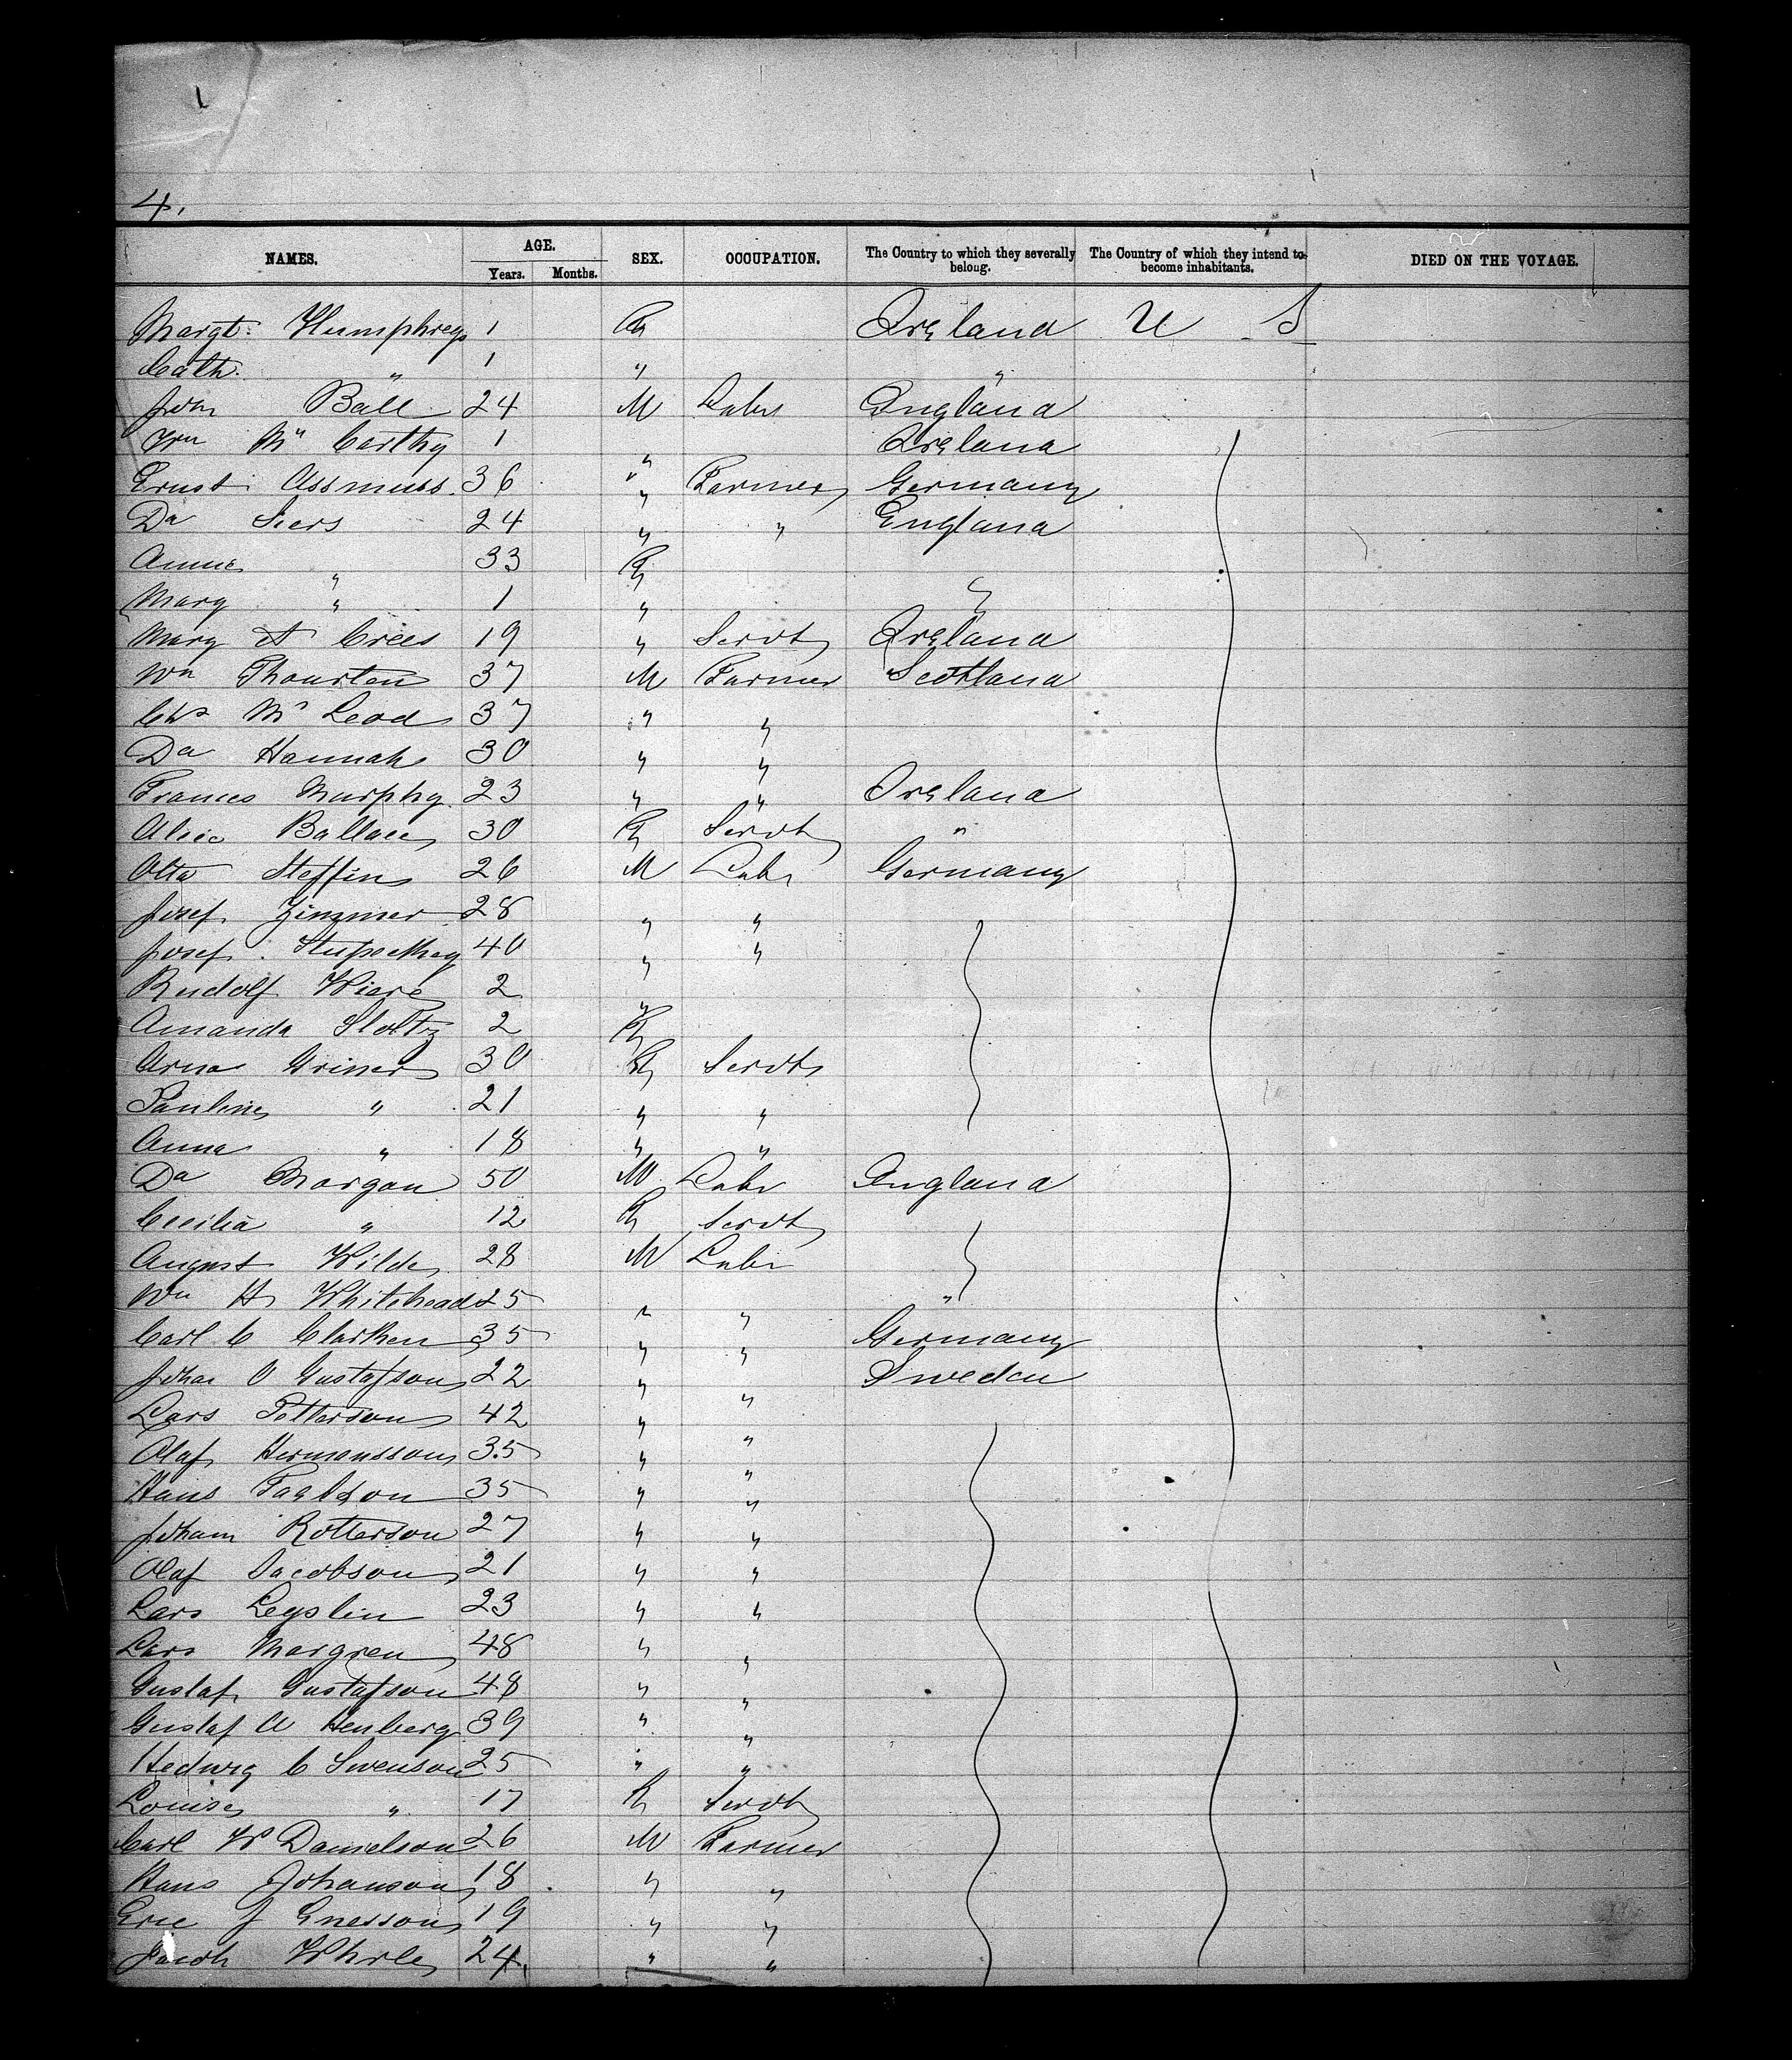 1
4.
NAMES. AGE. SEX. OCCUPATION. The Country to which they severally belong. The Country of which they intend to become inhabitants. DIED ON THE VOYAGE.
Years. Months.
Margt. Humphreys 1 Ireland U S
Cath. " 1 " "
John Ball 24 M Labr England
Wm Mc Carthy 1 " Ireland
Ernst Assmuss 36 " Farmer Germany
Da Siers 24 " " England
Annie " 33
Mary " 1 " "
Mary A Crees 19 " Servt Ireland
Wm Thourton 37 M Farmer Scotland
Chs Mc Leod 37 " "
Da Hannah 30 " "
Frances Murphy 23 " " Ireland
Alice 30 Servt "
Otto Steffin 26 M Labr Germany
Josef Zimmer 28 " "
Josef 40 " "
Rudolf 2 "
Amanda Sloltz 2
Griner 30 Servt
Pauline " 21 " "
Anna " 18 " "
Da Morgan 50 M Labr England
Cecilia " 12 Servt
August Wilde 28 M Labr
Wm H Whitehead 25 " " "
Carl C Clarken 35 " " Germany
Johan O Gustafson 22 " " Sweden
Lars Petterson 42 " "
Olaf Hermansson 35 " "
Hans 35 " "
Johan Rotterson 27 " "
Olaf Jacobson 21 " "
Lars 23 " "
Lars Morgren 48 " "
Gustaf Gustafson 48 " "
Gustaf A Henberg 39 " "
Hedwig C Swenson 25 " "
Louise " 17 Servt
Carl W Danielson 26 M Farmer
Hans Johanson 18 " "
Eric J 19 " "
Jacob 24 " "